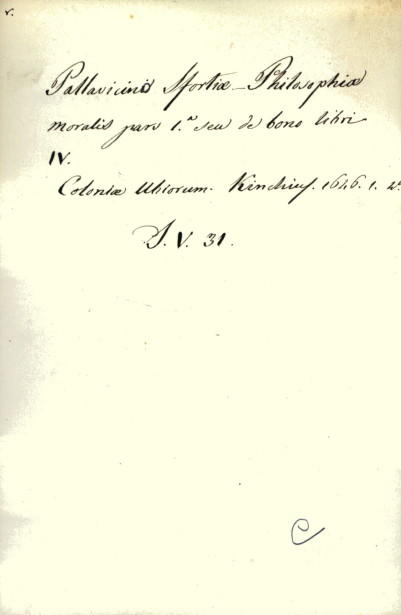 v.
Pallavicini Sfortiæ - Philosophiæ
moralis pars 1.a seu de bono libri
IV.
Coloniæ Ubiorum. Kinchius. 1646. 1. 4.
S. V. 31.
C